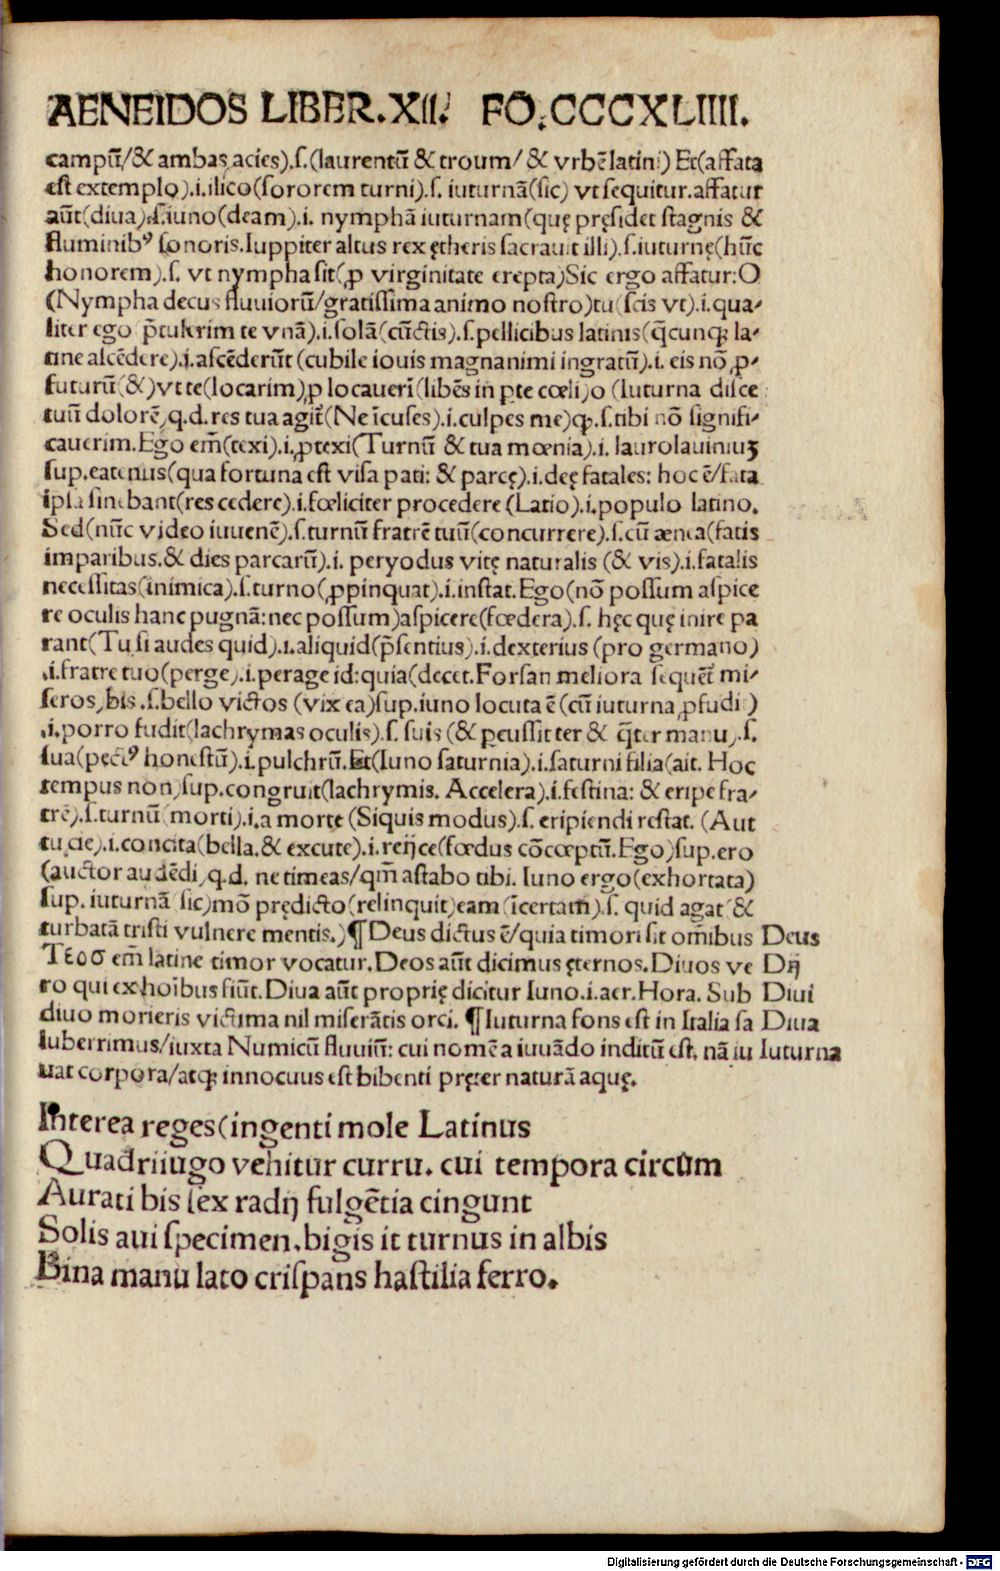 AENEIDOS LIBER.XII. FO.CCCXLIIII.
campū/& ambas acies).ſ.(laurentū & troum/ & vrbē latini) Et(affata
eſt extemplo).i.ilico(ſororem turni).ſ. iuturnā(ſic) vt ſequitur.affatur
aūt(diua).ſ.iuno(deam).i. nymphā iuturnam(quę pręſidet ſtagnis &
fluminibꝰ ſonoris.Iuppiter altus rex ętheris ſacrauit illi).ſ.iuturnę(hūc
honorem).ſ. vt nympha ſit(ꝓ virginitate erepta)Sic ergo affatur:O
(Nympha decus fluuiorū/gratiſſima animo noſtro)tu(ſcis vt).i.qua-
liter ego p̄tulerim te vnā).i.ſolā(cūctis).ſ.pellicibus latinis(q̄cunqꝫ la-
tine aſcēdere).i.aſcēderūt(cubile iouis magnanimi ingratū).i. eis nō ꝓ-
futurū(&)vt te(locarim)ꝓ locauerī(libēs in ꝑte cœli)o (Iuturna diſce
tuū dolorē, q.d. res tua agit̄(Ne īcuſes).i.culpes me)ꝙ.ſ.tibi nō ſignifi-
cauerim.Ego em̄(texi).i.ꝓtexi(Turnū & tua mœnia).i. laurolauiniuꝫ
ſup.eatenus(qua fortuna eſt viſa pati: & parcę).i.deę fatales: hoc ē/fata
ipſa ſinebant(res cedere).i.fœliciter procedere(Latio).i.populo latino.
Sed(nūc video iuuenē).ſ.turnū fratrē tuū(concurrere).ſ.cū ænea(fatis
imparibus.& dies parcarū).i. peryodus vitę naturalis (& vis).i.fatalis
neceſſitas(inimica).ſ.turno(ꝓpinquat).i.inſtat.Ego(nō poſſum aſpice
re oculis hanc pugnā: nec poſſum)aſpicere(fœdera).ſ. hęc quę inire pa
rant(Tu ſi audes quid).i.aliquid(p̄ſentius).i.dexterius (pro germano)
.i.fratre tuo(perge).i.perage id:quia(decet.Forſan meliora ſequēt̄ mi-
ſeros, bis .ſ.bello victos (vix ea)ſup.iuno locuta ē(cū iuturna ꝓfudi)
.i.porro fudit(lachrymas oculis).ſ. ſuis (& ꝑcuſſit ter & q̄ter manu).ſ.
ſua(pectꝰ honeſtū).i.pulchrū.Et(Iuno ſaturnia).i.ſaturni filia(ait. Hoc
tempus non)ſup.congruit(lachrymis. Accelera).i.feſtina: & eripe fra-
trē).ſ.turnū(morti).i.a morte (Siquis modus).ſ. eripiendi reſtat. (Aut
tu cie).i.concita(bella.& excute).i.reijce(fœdus cōceptū.Ego)ſup.ero
(auctor audēdi, q.d. ne timeas/qm̄ aſtabo tibi. Iuno ergo(exhortata)
ſup. iuturnā (ſic)mō prędicto(relinquit)eam(īcertam).ſ. quid agat (&
turbatā triſti vulnere mentis.)¶Deus dictus ē/quia timori ſit om̄ibus Deus
Τεοσ em̄ latine timor vocatur.Deos aūt dicimus ęternos.Diuos ve Dij
ro qui ex hoībus fiūt.Diua aūt proprię dicitur Iuno.i.aer.Hora. Sub Diui
diuo morieris victima nil miſerātis orci. ¶Iuturna fons eſt in Italia ſa Diua
luberrimus/iuxta Numicū fluuiū: cui nomē a iuuādo inditū eſt. nā iu Iuturna
uat corpora/atqꝫ innocuus eſt bibenti pręter naturā aquę.
Interea reges(ingenti mole Latinus
Quadriiugo vehitur curru. cui tempora circum
Aurati bis ſex radij fulgētia cingunt
Solis aui ſpecimen.bigis it turnus in albis
Bina manu lato criſpans haſtilia ferro.
Digitalisierung gefördert durch die Deutsche Forschungsgemeinschaft - DFG